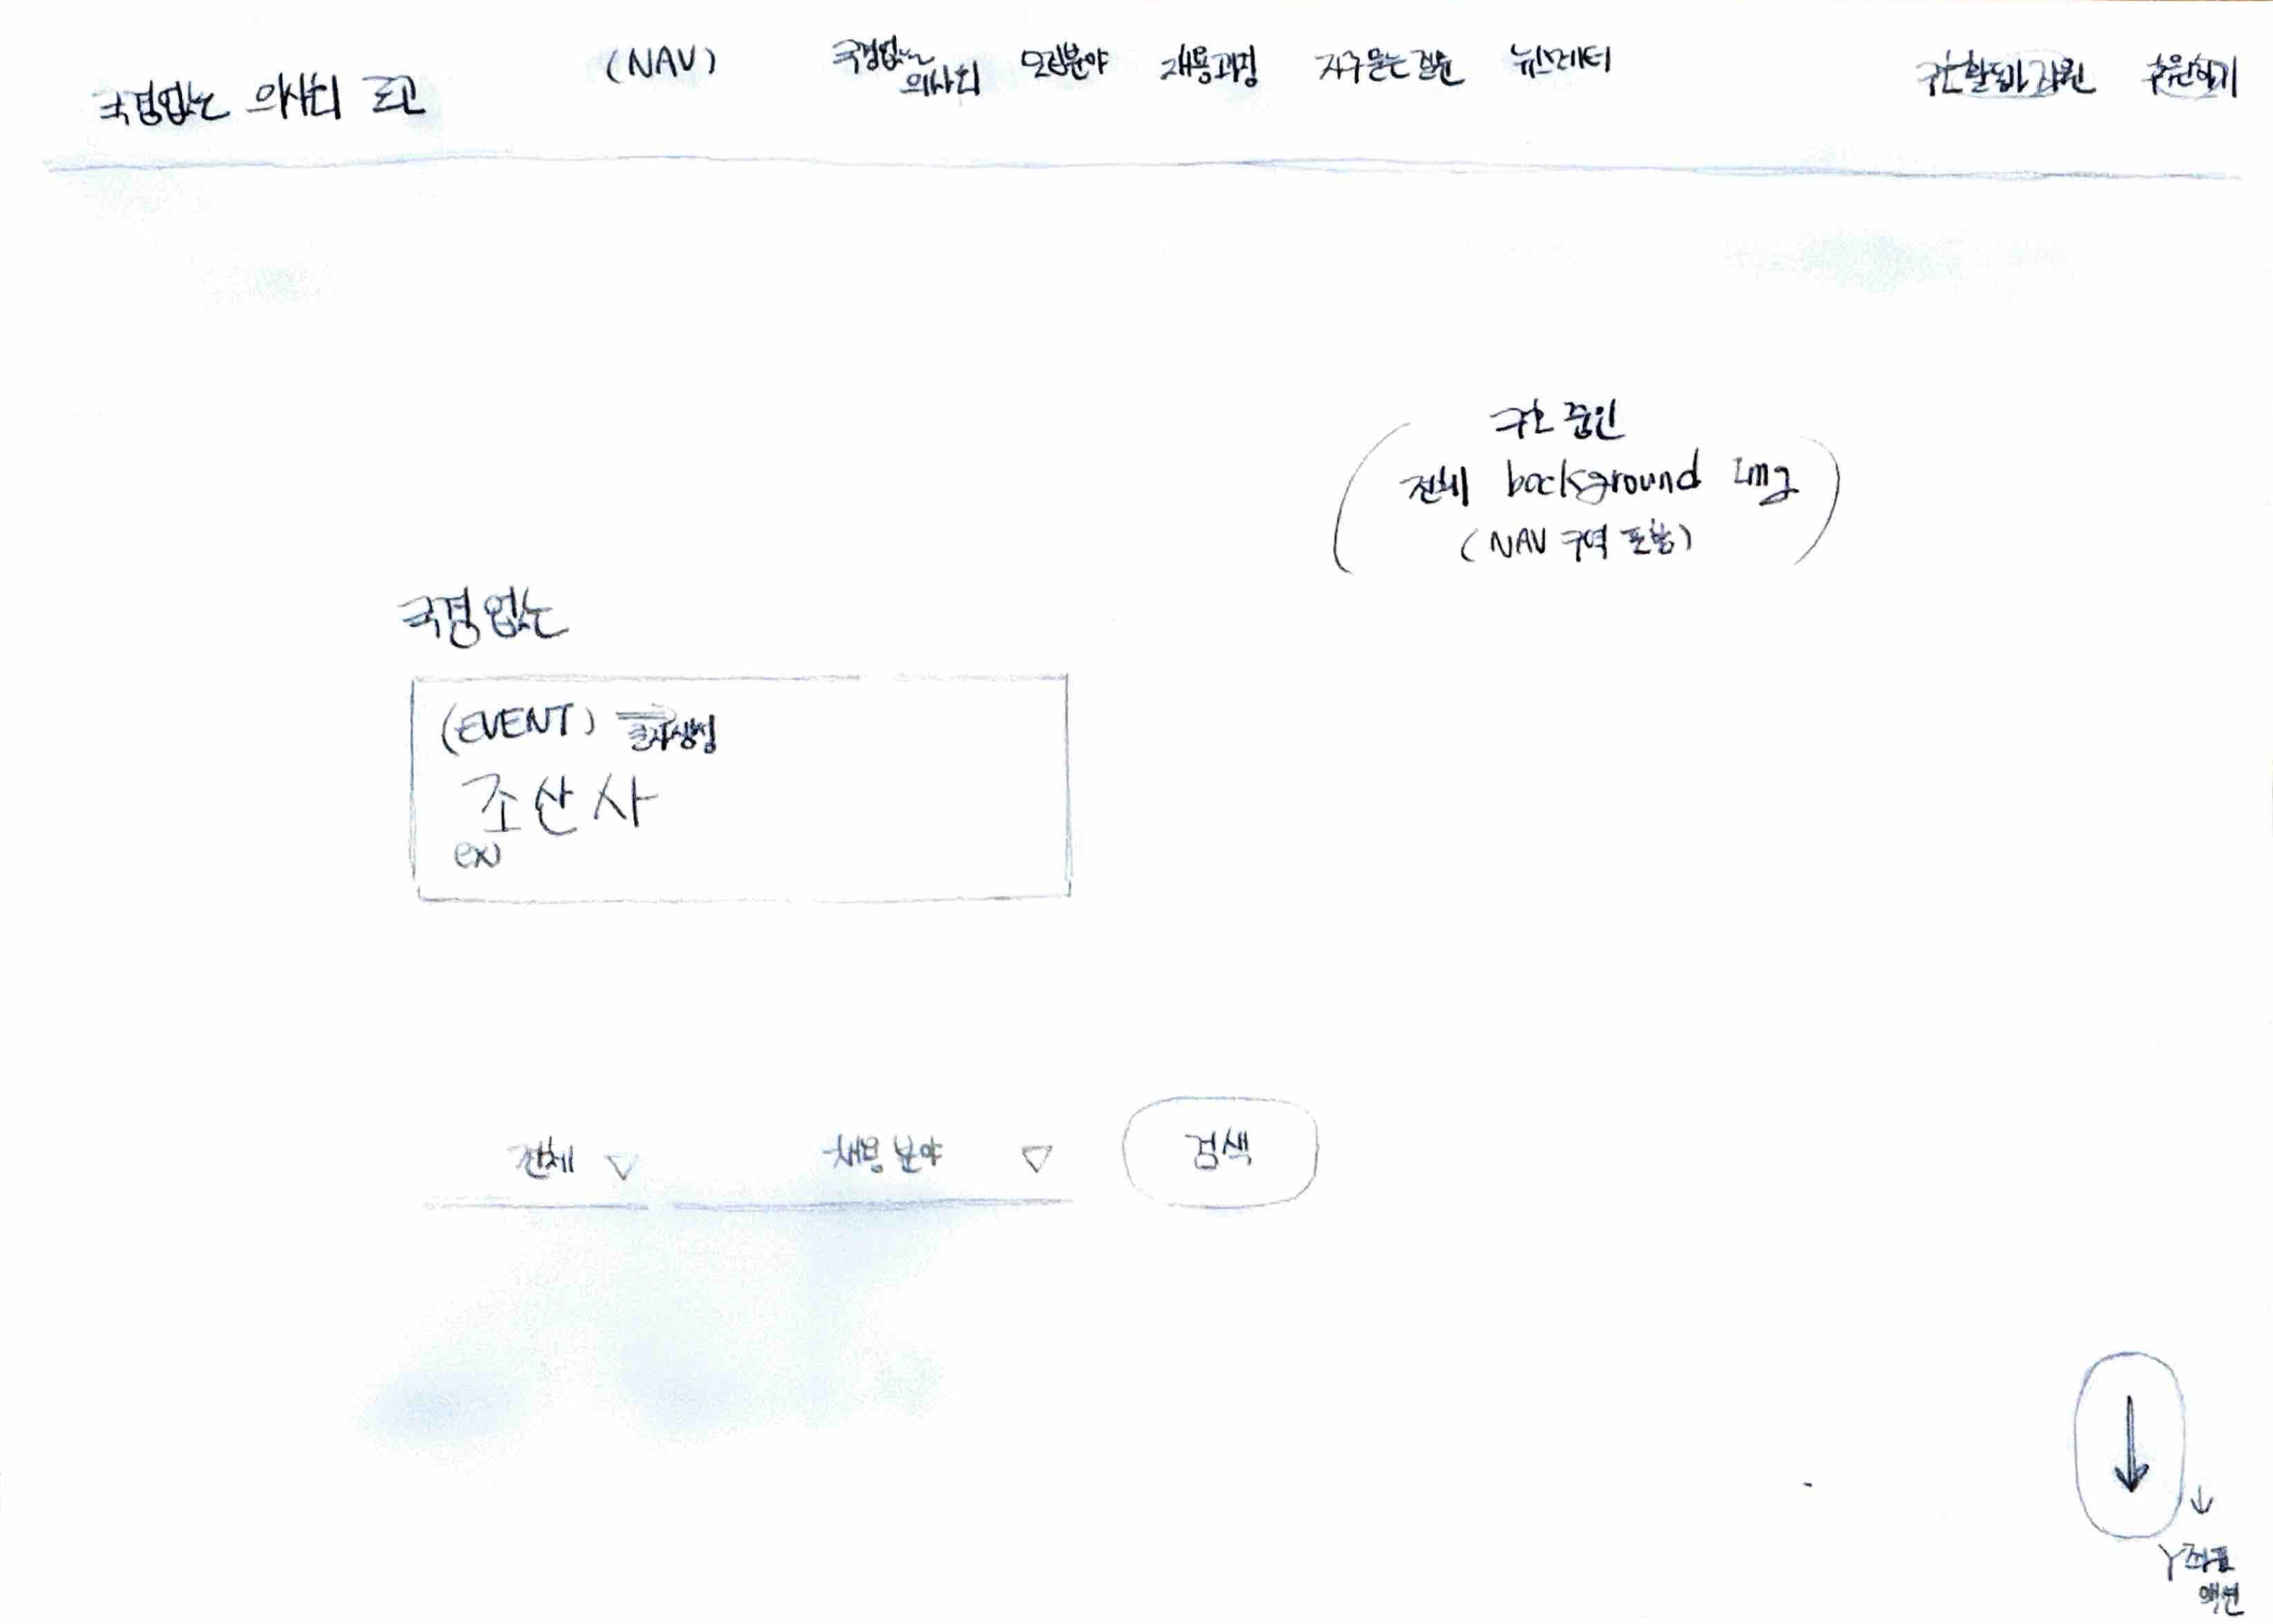 국경없는 의사회 로고
(NAV)
국경없는
의사회
모집분야
채용과정
자주 묻는 질문
뉴스레터
구호활동가 지원
후원하기
구호 중인
전체 background Img
(NAV 구역 포함)
국경 없는
(EVENT) 글자생성
조산사
ex)
전체 ▽
채용 분야 ▽
검색
↓
↓
Y좌표
액션